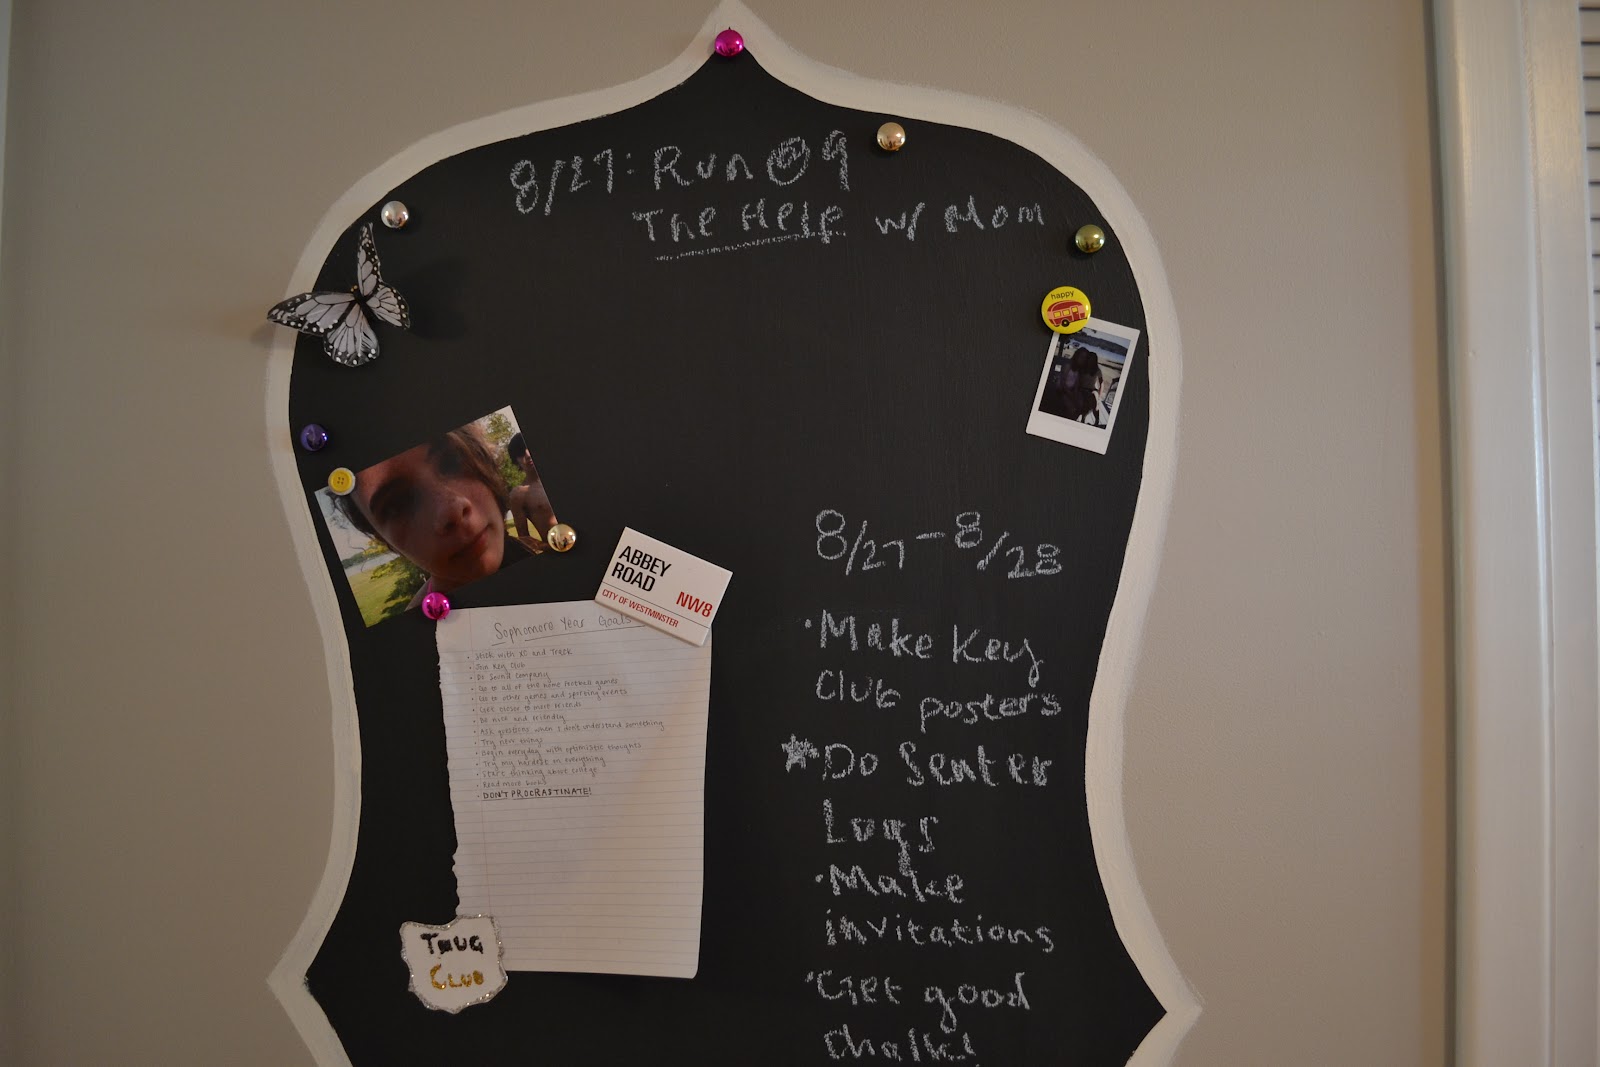 8/27: Run @ 9
The Help w/ Mom
happy
ABBEY
ROAD
NW8
CITY OF WESTMINSTER
Sophomore Year Goals
• Stick with XC and Track
• Join Key Club
• Do Sound Company
• Go to all of the home football games
• Go to other games and sporting events
• Get closer to more friends
• Be nice and friendly
• Ask questions when I don't understand something
• Try new things
• Begin everyday with optimistic thoughts
• Try my hardest on everything
• Start thinking about college
• Read more books
• DON'T PROCRASTINATE!
THUG
CLUB
8/27-8/28
• Make Key
Club posters
* Do Senter
Logs
• Make
invitations
• Get good
chalk!